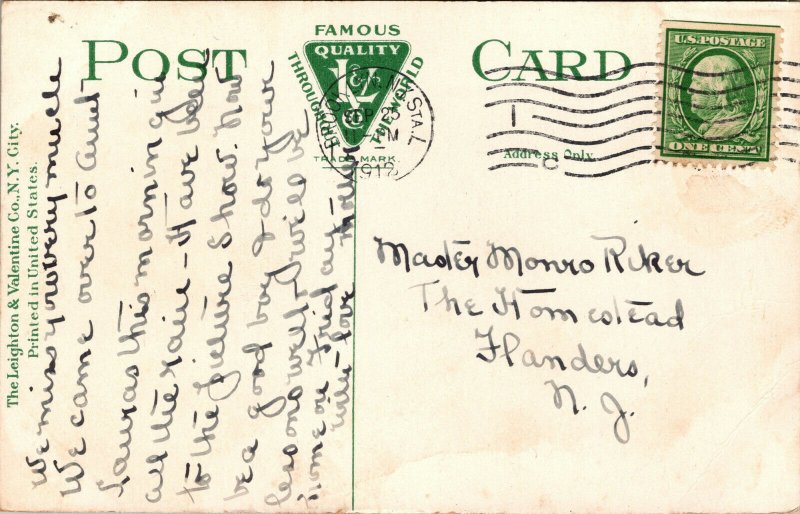 POST CARD
FAMOUS
QUALITY
THROUGHOUT
THE WORLD
L&V
TRADE MARK.
STA. L
SEP 25
M
1912
U.S. POSTAGE
ONE CENT
1
C
Address Only.
The Leighton & Valentine Co., N.Y. City.
Printed in United States.
We miss you very much
We came over to Aunt
Lauras this morning in
all the rain - Have been
to the Picture Show. Now
be a good boy & do your
lessons well - I will be
home on Friday.
with love mother
Master Monro Riker
The Homestead
Flanders,
N. J.